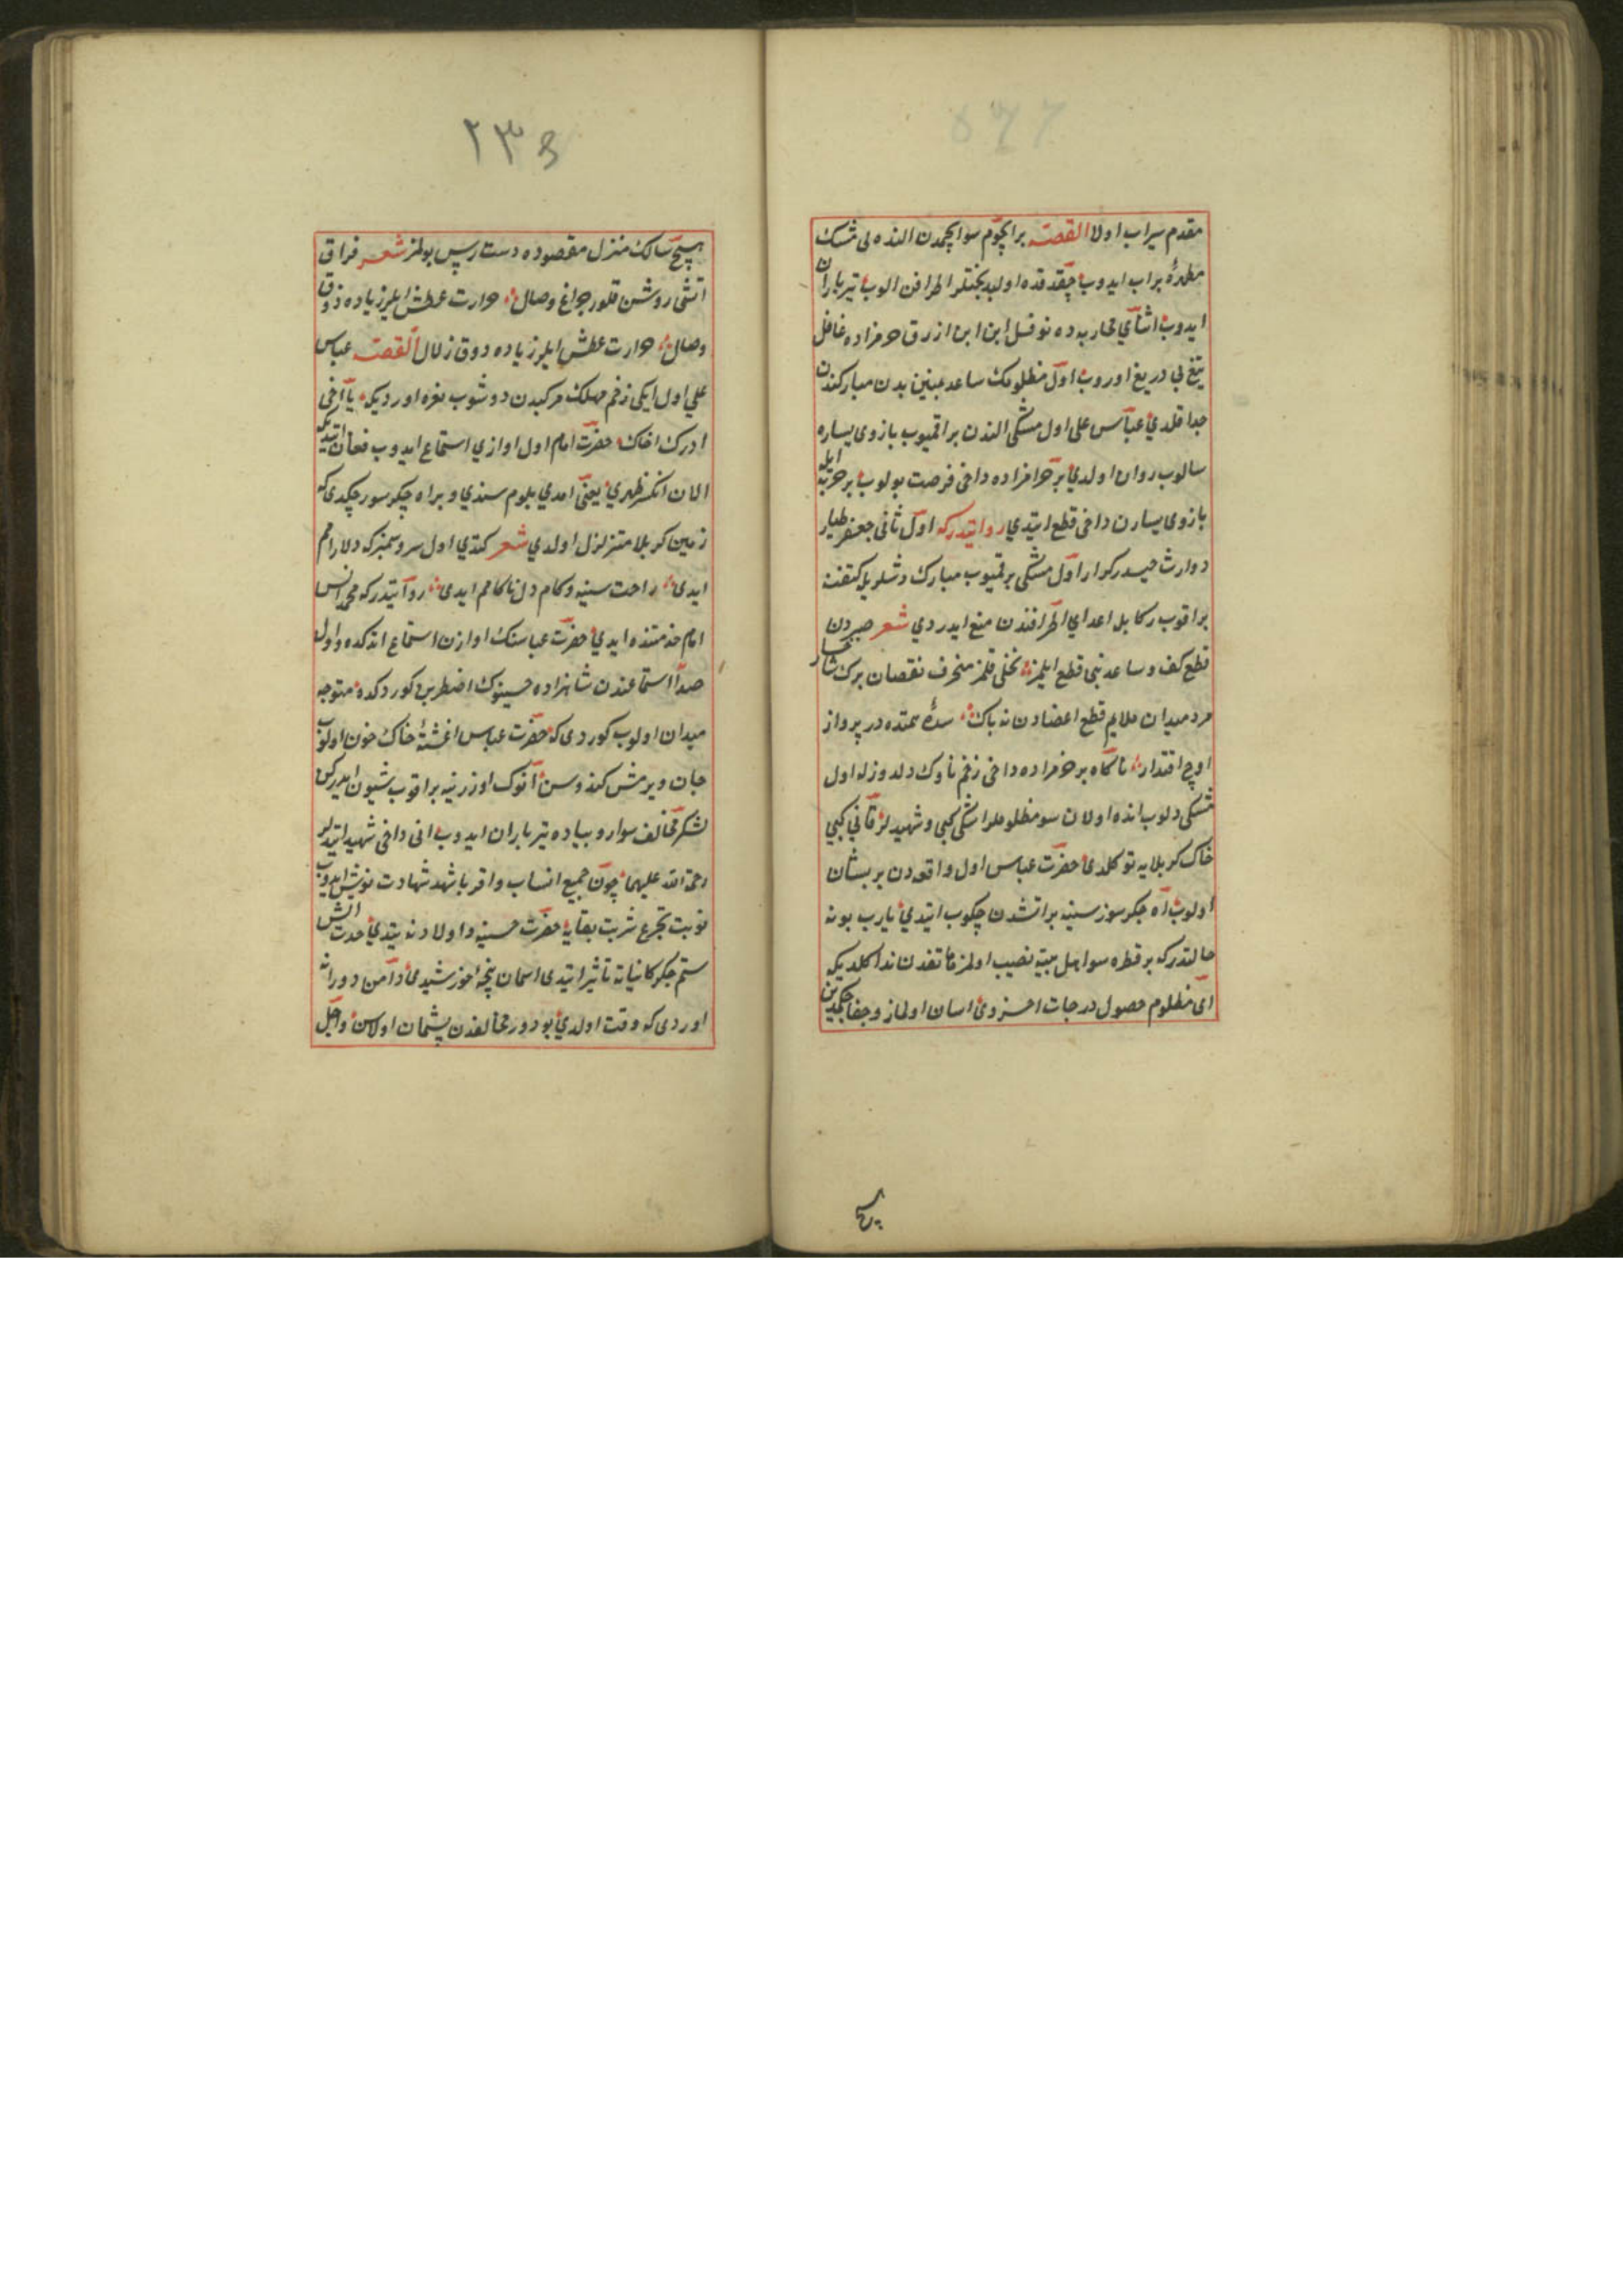 مقدم سیراب اولا القصه بر ایچوم سو ایچمدن النده لی مشک
مطهره بر اب ایدوب چقدقده اول بدبختلر اطرافن الوب تیر باران
ایدوب اثنای محاربه ده نوفل ابن ازرق حرامزاده غافل
تیغ بی دریغ اوروب اول مظلومک ساعد یمینین بدن مبارکندن
جدا قلدی عباس علی اول مشکی الندن براقمیوب بازوی یساره
سالوب روان اولدی بر حرامزاده داخی فرصت بولوب بر حربه ایله
بازوی یسارن داخی قطع ایتدی روایتدرکه اول ثانی جعفر طیار
و وارث حیدر کرار اول مشکی براقمیوب مبارک دشلریله کتفنه
براقوب رکابله اعدای اطرافندن منع ایدردی شعر صبردن
قطع کف و ساعد بنی قطع ایلمز نخلی قلمز منحرف نقصان برک شاخسار
مرد میدان ملایم قطع اعضادن نه باک سدره سمتنده در پرواز
اوج اقتدار ناگاه بر حرامزاده داخی زخم ناوک دلدوزله اول
مشکی دلوب انده اولان سو مظلوملر اشکی کبی و شهیدلر قانی کبی
خاک کربلایه توکلدی حضرت عباس اول واقعه دن پریشان
اولوب اه جگر سوز سینه پر اتشدن چکوب ایتدی یارب بو نه
حالتدرکه بر قطره سو اهل بیته نصیب اولمز هاتفدن ندا کلدیکه
ای مظلوم حصول درجات اخروی اسان اولماز و جفا چکمدین
هیچ
٢٣٥
هیچ سالک منزل مقصوده دسترس بولمز شعر فراق
اتشی روشن قلور چراغ وصال حرارت عطش ایلر زیاده ذوق
وصال حرارت عطش ایلر زیاده ذوق زلال القصه عباس
علی اول ایکی زخم مهلک مرکبدن دوشوب نعره اوردیکه یا اخی
ادرک اخاک حضرت امام اول اوازی استماع ایدوب فغان ایتدیکه
الان انکسر ظهری یعنی امدی بلوم سندی و بر اه جگر سوز چکدی که
زمین کربلا متزلزل اولدی شعر کتدی اول سرو سمنبر که دلارامم
ایدی راحت سینه و کام دل ناکامم ایدی روایتدرکه محمد انس
امام خدمتنده ایدی حضرت عباسنک اوازن استماع اتدکده و اول
صدا استماعندن شاهزاده حسینوک اضطرابن کوردکده متوجه
میدان اولوب کوردی که حضرت عباس اغشتهٔ خاک خون اولوب
جان ویرمش کندوسن انوک اوزرینه براقوب شیون ایدرکن
لشکر مخالف سوار و پیاده تیر باران ایدوب انی داخی شهید ایتدیلر
رحمة الله علیهما چون جمیع انساب و اقربا شهد شهادت نوش ایدوب
نوبت تجرع شربت بقایه حضرت حسینه و اولادنه یتدی حدت اتش
ستم جگر کائناته تاثیر ایتدی اسمان پنجهٔ خورشیدی دامن دورانه
اوردی که وقت اولدی بو دور مخالفدن پشیمان اولاسن و اجل